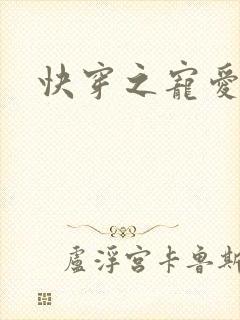 快穿之寵愛
盧浮宮卡魯斯